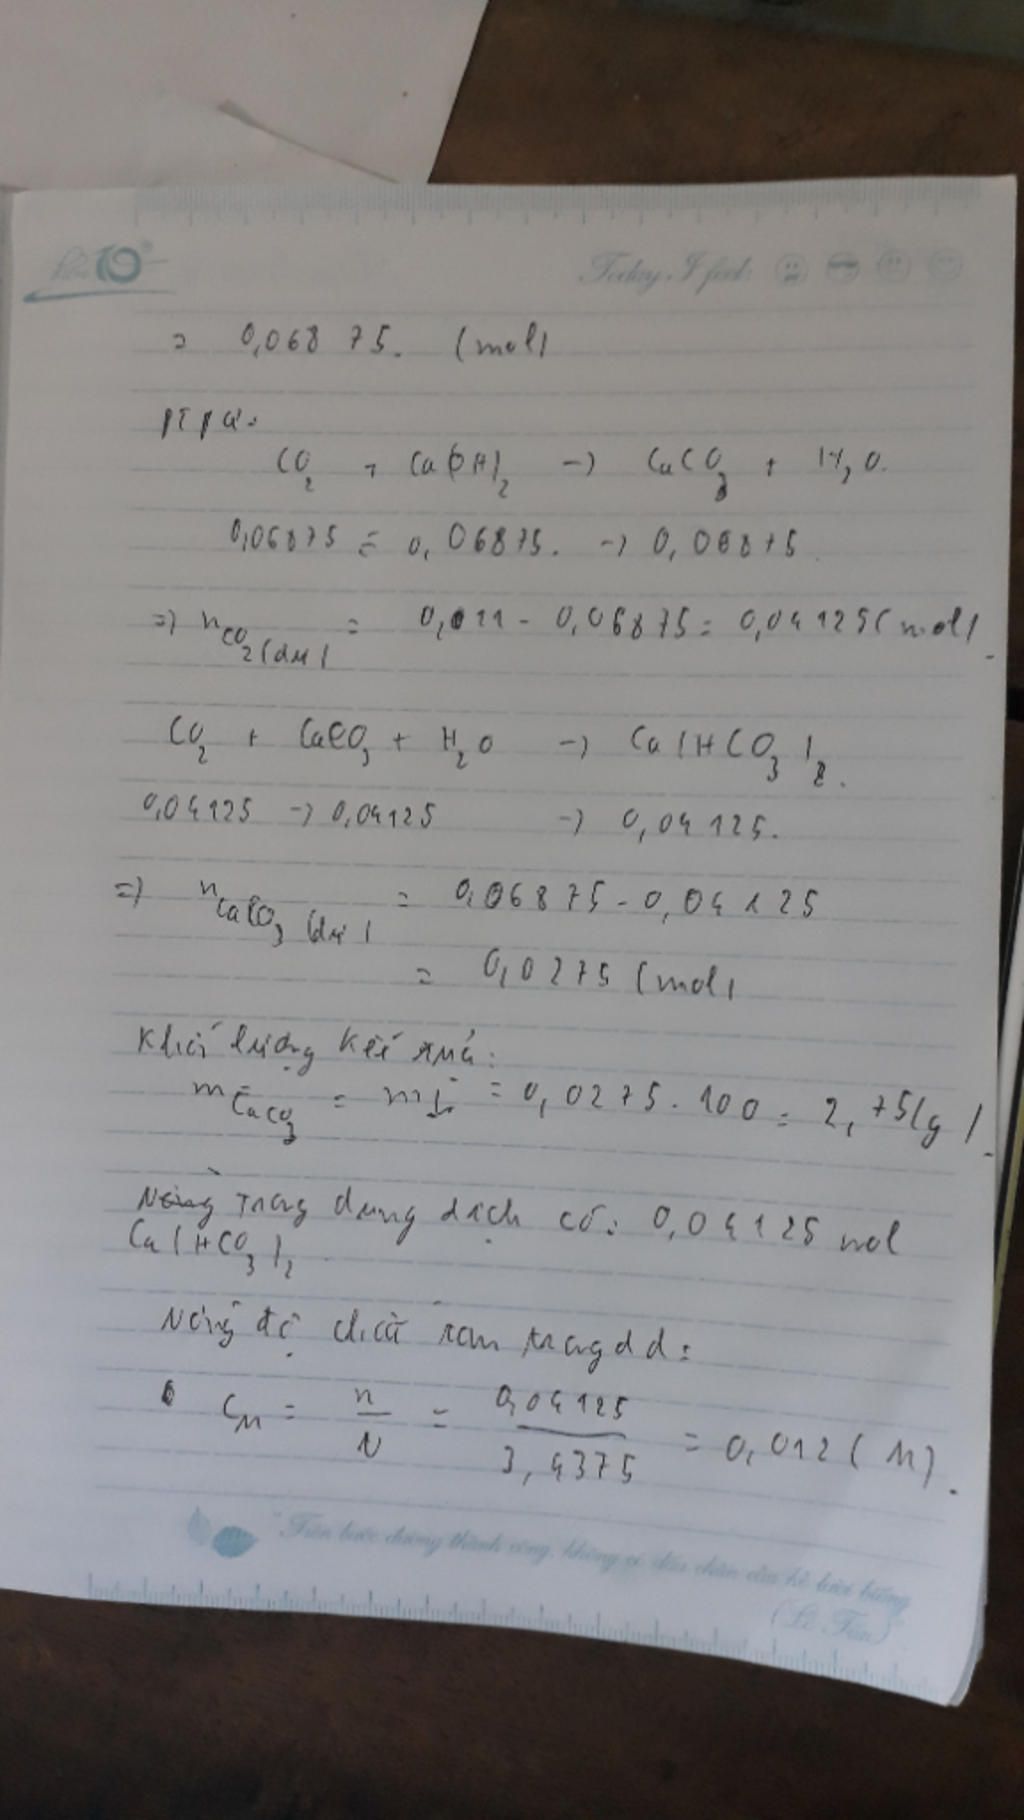 10
Today, I feel:
= 0,06875. (mol)
PTPƯ:
CO2 + Ca(OH)2 -> CaCO3 + H2O.
0,06875 = 0,06875. -> 0,06875
=) nCO2(dư) = 0,011 - 0,06875 = 0,04125(mol)
CO2 + CaCO3 + H2O -> Ca(HCO3)2.
0,04125 -> 0,04125 -> 0,04125.
=) nCaCO3 (dư) = 0,06875 - 0,04125
= 0,0275 (mol)
Khối lượng kết tủa:
mCaCO3 = m↓ = 0,0275. 100 = 2,75(g).
trong dung dịch có: 0,04125 mol
Ca(HCO3)2
Nồng độ chất tan trong dd:
CM = n/V = 0,04125/3,4375 = 0,012 (M).
"Trên bước đường thành công, không có dấu chân của kẻ lười biếng
(Lỗ Tấn)"